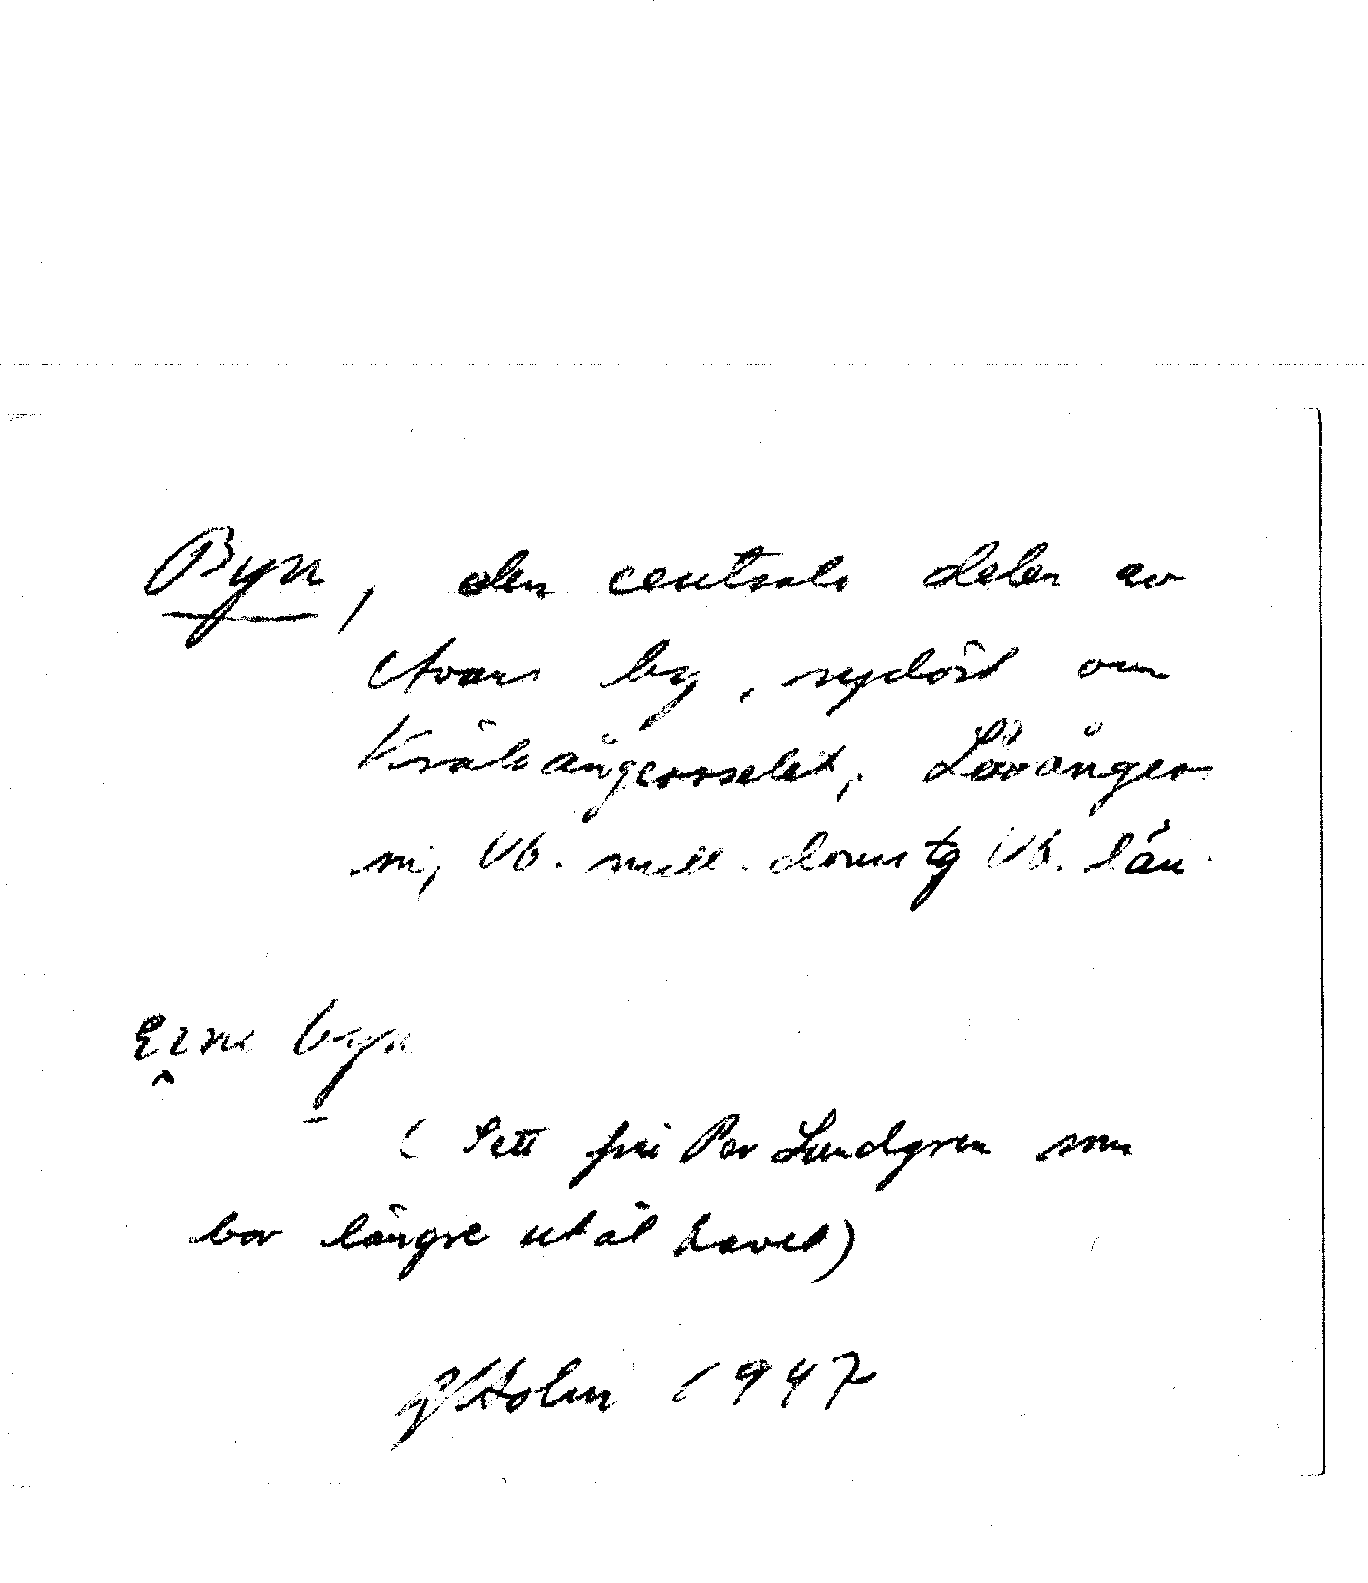 Byn, den centrala delen av
Avans by, sydöst om
Kråkångersselet, Lövånger
sn, Vb. södra domstg Vb. län.
byn
(Sett från Per Lundgren som
bor längre utåt havet)
Holm 1947